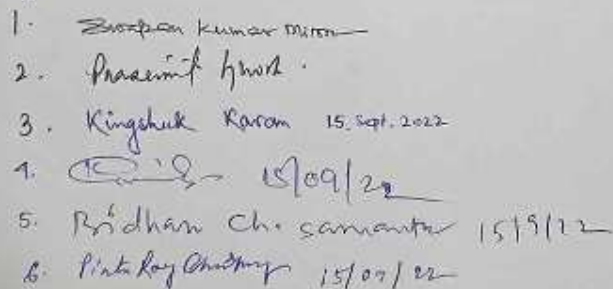 1. Swapan Kumar Mitra
2. Prasenjit Ghosh.
3. Kingshuk Karan 15. Sept. 2022
4. 15/09/22
5. Bidhan Ch. Samanta 15/9/22
6. Pintu Roy Chowdhury 15/09/22